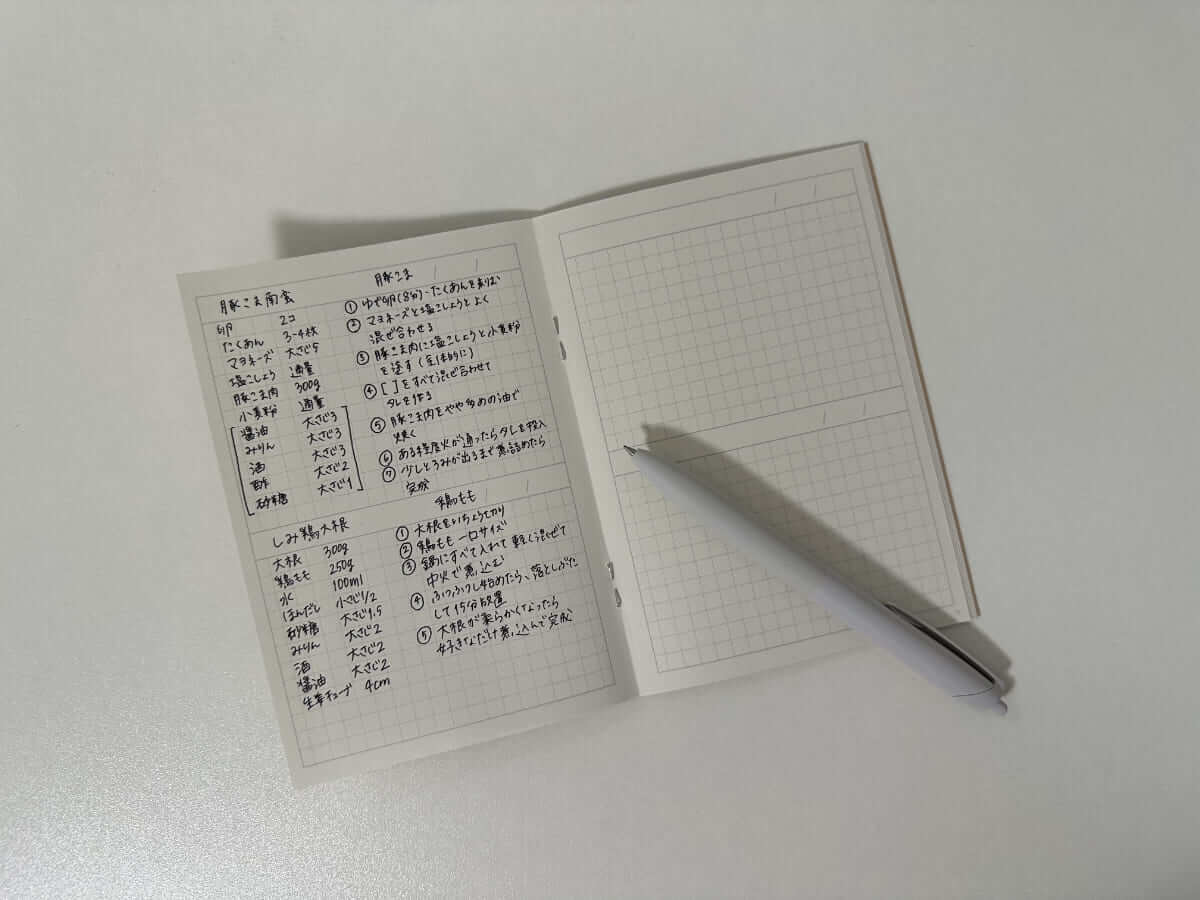 豚こま南蛮 豚こま
卵 2コ
たくあん 3-4枚
マヨネーズ 大さじ5
塩こしょう 適量
豚こま肉 300g
小麦粉 適量
醤油 大さじ3
みりん 大さじ3
酒 大さじ3
酢 大さじ2
砂糖 大さじ1
① ゆで卵(8分)・たくあんを刻む
② マヨネーズと塩こしょうとよく
混ぜ合わせる
③ 豚こま肉に塩こしょうと小麦粉
を塗す(全体的に)
④ [ ]をすべて混ぜ合わせて
タレを作る
⑤ 豚こま肉をやや多めの油で
焼く
⑥ ある程度火が通ったらタレを投入
⑦ 少しとろみが出るまで煮詰めたら
完成
しみ鶏大根 鶏もも
大根 300g
鶏もも 250g
水 100ml
ほんだし 小さじ1/2
砂糖 大さじ1.5
みりん 大さじ2
酒 大さじ2
醤油 大さじ2
生姜チューブ 4cm
① 大根をいちょう切り
② 鶏もも一口サイズ
③ 鍋にすべて入れて軽く混ぜて
中火で煮込む
④ ふつふつし始めたら、落としぶた
して15分放置
⑤ 大根が柔らかくなったら
好きなだけ煮込んで完成